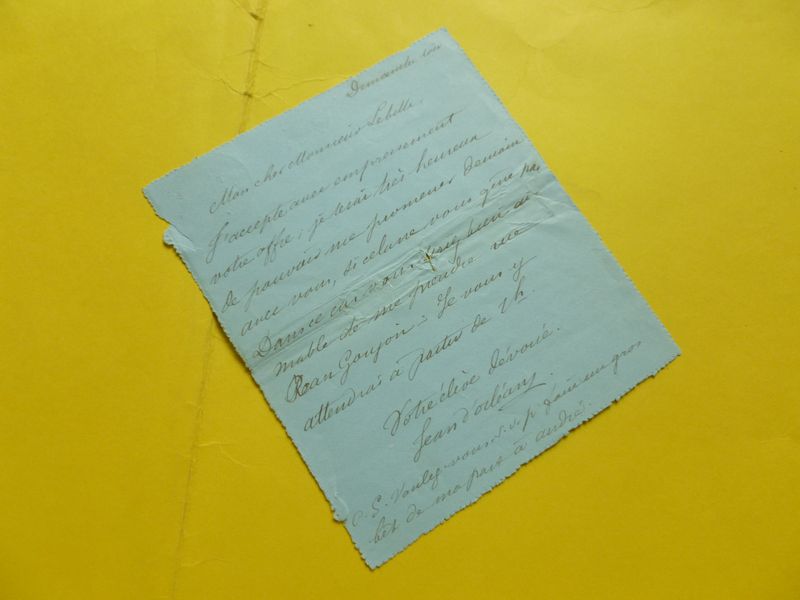 Dimanche soir
Mon cher Monsieur Lebelle,
J'accepte avec empressement
votre offre; je serai très heureux
de pouvoir me promener demain
avec vous, si cela ne vous gêne pas.
Dans ce cas vous bien ai-
mable de me prendre rue
Jean Goujon. Je vous y
attendrai à partir de 1h.
Votre élève dévoué.
Jean d'orléans.
P.S. Voulez-vous s.v.p. faire un gros
bêt de ma part à andré.